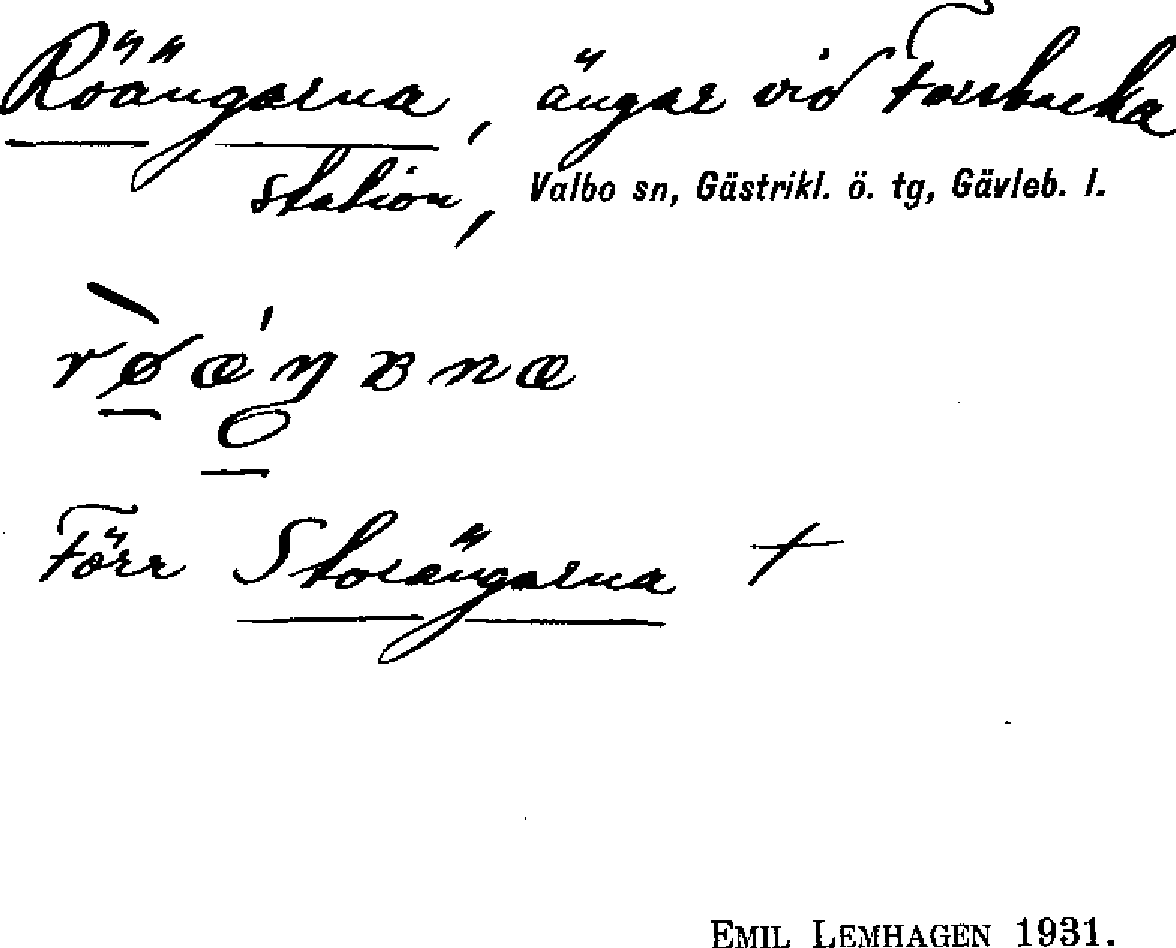 Röängarna, ängar vid Forsbacka
station, Valbo sn, Gästrikl. ö. tg, Gävleb. l.
rø̀æ´ŋʙnæ
Förr Storängarna †
EMIL LEMHAGEN 1931.